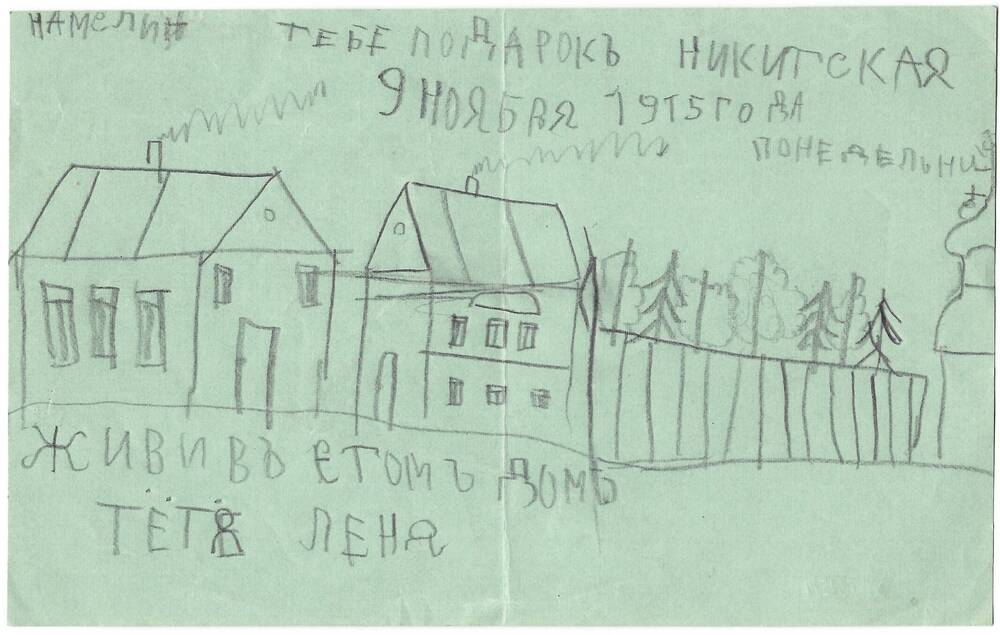 НАМЕЛИН ТЕБЕ ПОДАРОКЪ НИКИТСКАЯ
9 НОЯБРЯ 1915 ГОДА
ПОНЕДЕЛЬНИ
ЖИВИ ВЪ ЕТОМЪ ДОМЪ
ТЁТЯ ЛЕНА